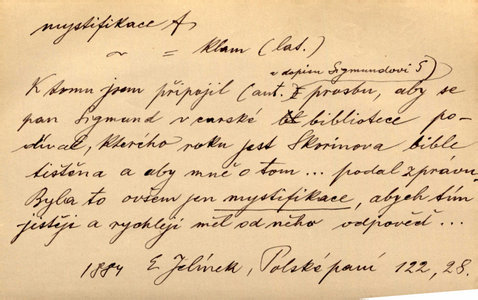 mystifikace f
~ = klam (lat.)
v dopisu Sigmundovi S)
K tomu jsem připojil (aut. prosbu, aby se
pan Sigmund v carské bibliotece po-
díval, kterého roku jest Skorinova bible
tištěna a aby mně o tom ... podal zprávu.
Byla to ovšem jen mystifikace, abych tím
jistěji a rychleji měl od něho odpověď ...
1884 E Jelínek, Polské paní 122, 28.